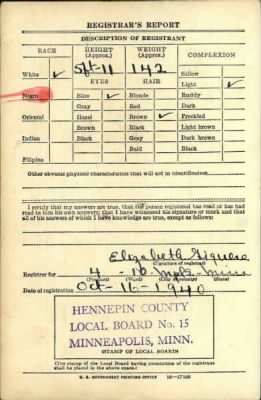 REGISTRAR'S REPORT
DESCRIPTION OF REGISTRANT
RACE HEIGHT (Approx.) WEIGHT (Approx.) COMPLEXION
White ✓ 5ft-11 142 Sallow
EYES HAIR Light ✓
Negro Blue ✓ Blonde Ruddy
Gray Red Dark
Oriental Hazel Brown ✓ Freckled
Brown Black Light brown
Indian Black Gray Dark brown
Bald Black
Filipino
Other obvious physical characteristics that will aid in identification
I certify that my answers are true; that the person registered has read or has had
read to him his own answers; that I have witnessed his signature or mark and that
all of his answers of which I have knowledge are true, except as follows:
Elizabeth
(Signature of registrar)
Registrar for 4 - 10 Mpls - Minn
Date of registration Oct-16-1940
HENNEPIN COUNTY
LOCAL BOARD No. 15
MINNEAPOLIS, MINN.
(STAMP OF LOCAL BOARD)
(The stamp of the Local Board having jurisdiction of the registrant
shall be placed in the above space.)
U. S. GOVERNMENT PRINTING OFFICE